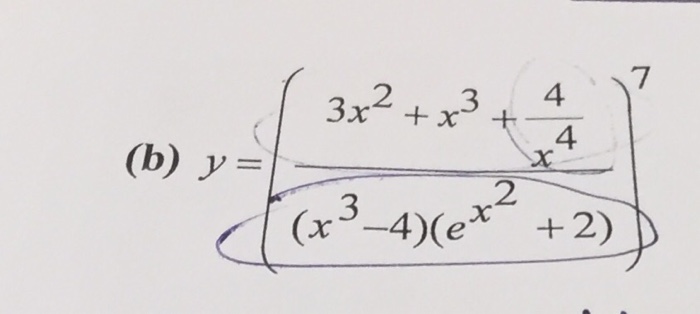 (b) y = ( (3x^2 + x^3 + 4/x^4) / ((x^3 - 4)(e^{x^2} + 2)) )^7